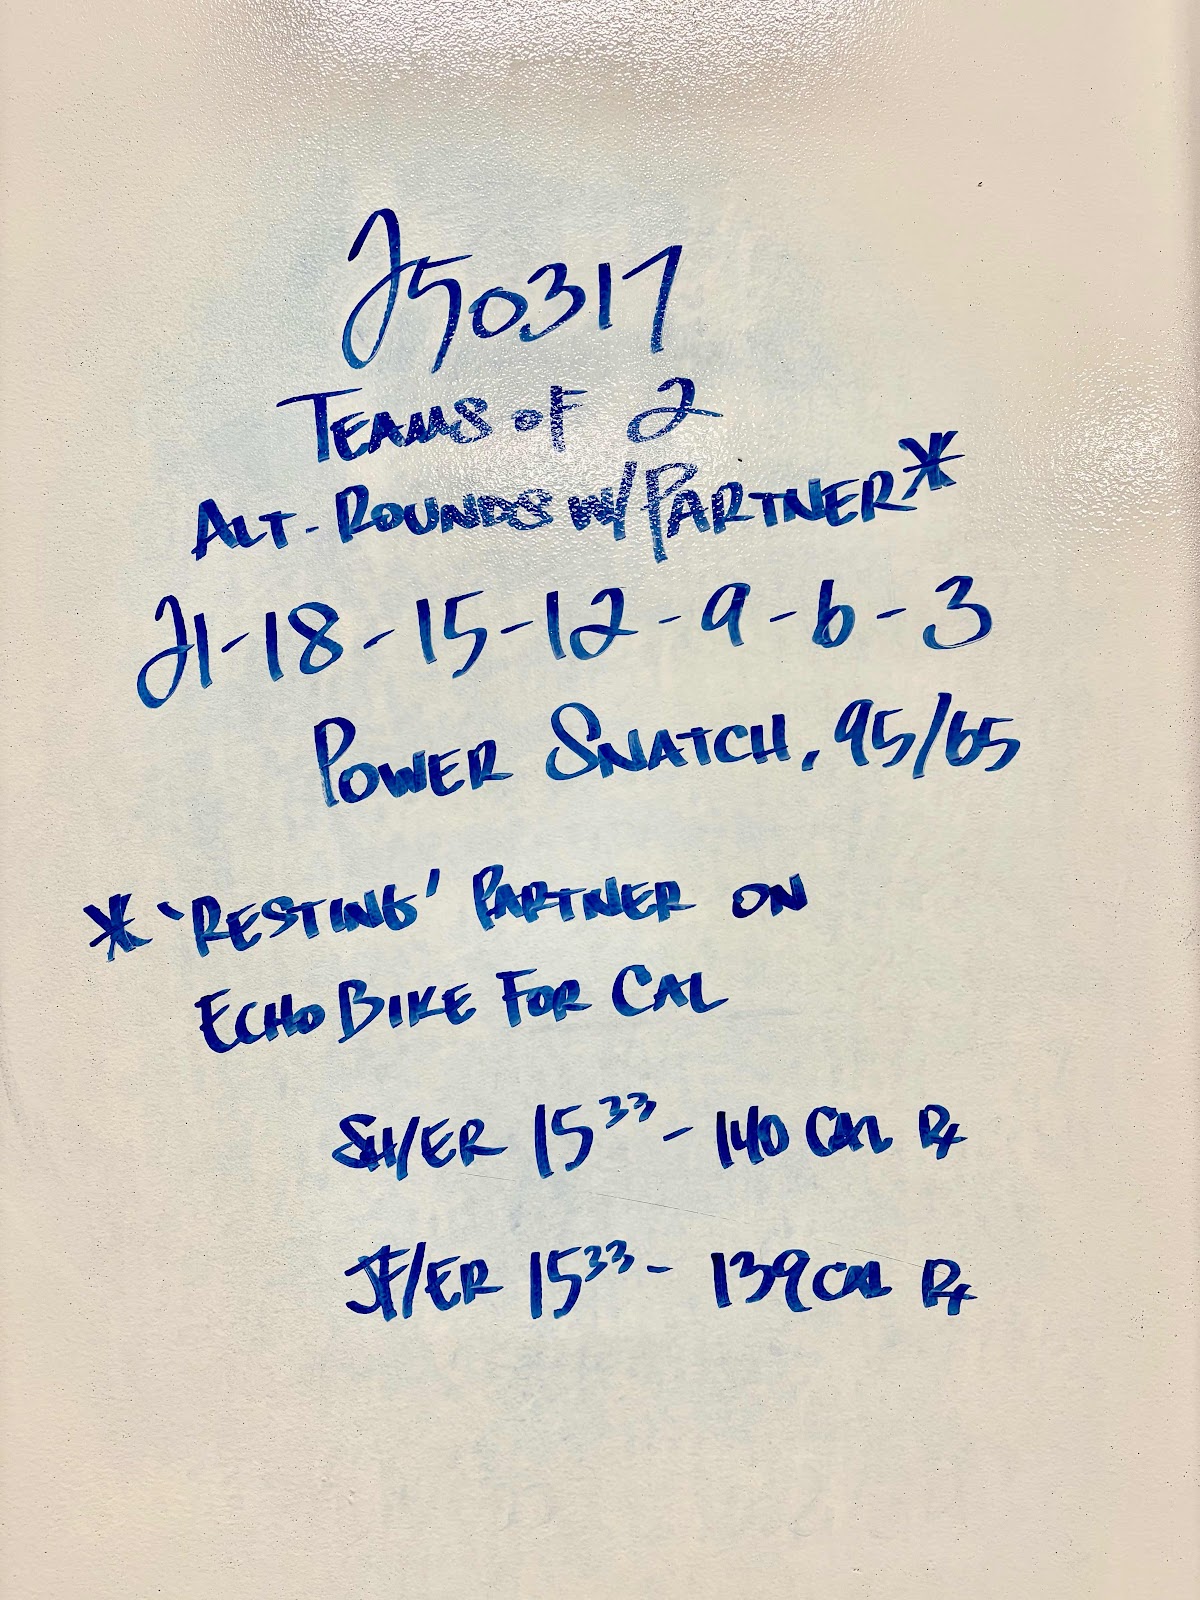 250317
TEAMS OF 2
ALT-ROUNDS W/ PARTNER*
21-18-15-12-9-6-3
POWER SNATCH, 95/65
* 'RESTING' PARTNER ON
ECHO BIKE FOR CAL
SH/ER 15³³ - 140 CAL Rx
JF/ER 15³³ - 139 CAL Rx